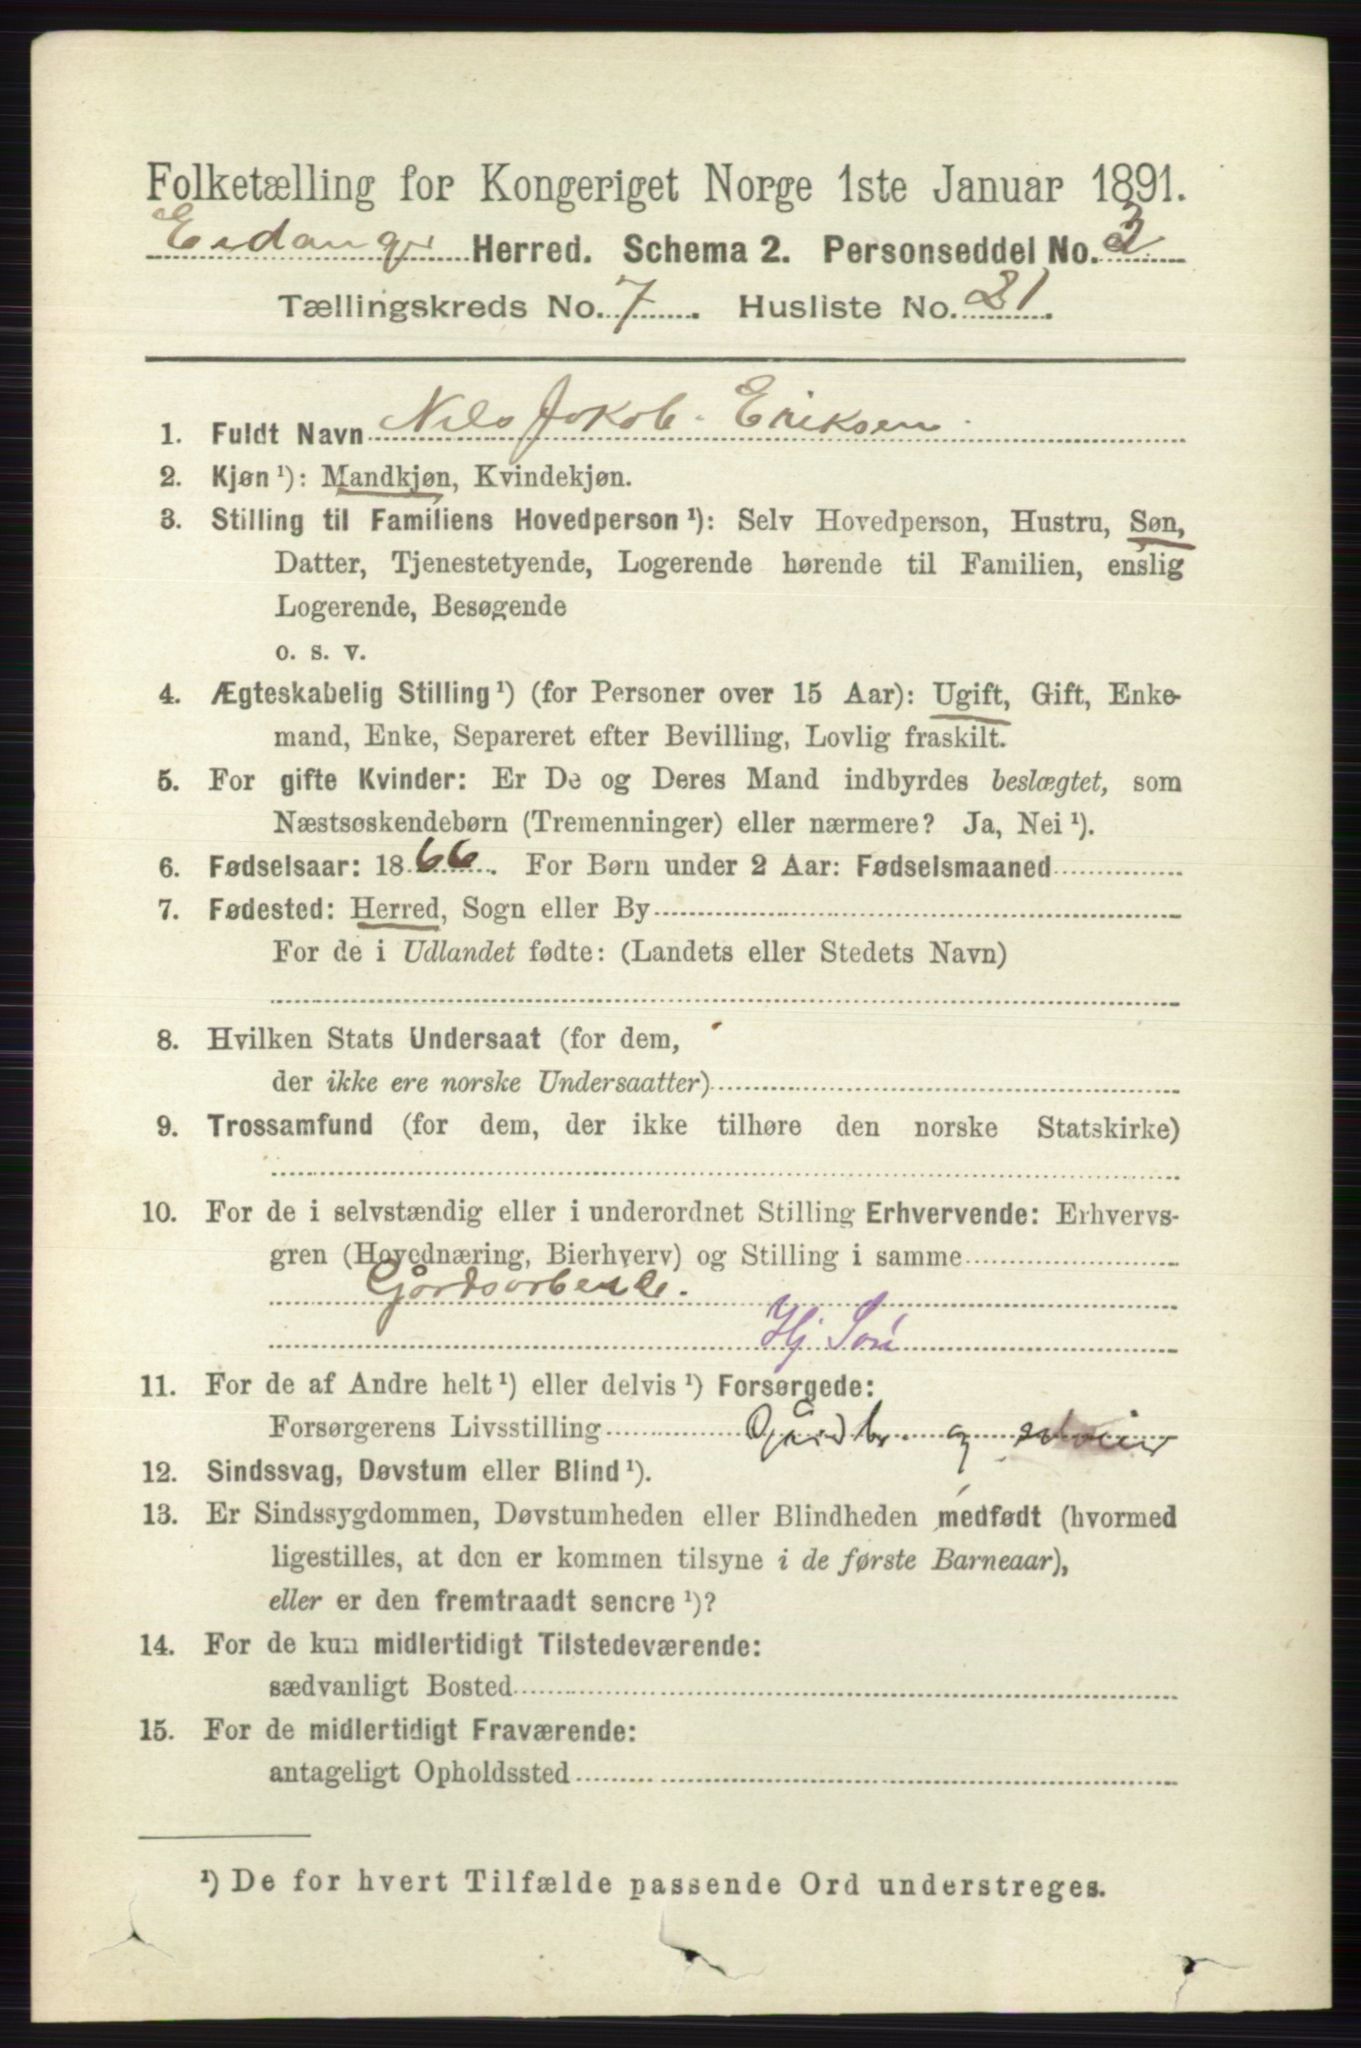 Folketælling for Kongeriget Norge 1ste Januar 1891.
Eidanger Herred. Schema 2. Personseddel No. 3
Tællingskreds No. 7. Husliste No. 21.
1. Fuldt Navn Nils Jakob Eriksen
2. Kjøn ¹): Mandkjøn, Kvindekjøn.
3. Stilling til Familiens Hovedperson ¹): Selv Hovedperson, Hustru, Søn,
Datter, Tjenestetyende, Logerende hørende til Familien, enslig
Logerende, Besøgende
o. s. v.
4. Ægteskabelig Stilling ¹) (for Personer over 15 Aar): Ugift, Gift, Enke-
mand, Enke, Separeret efter Bevilling, Lovlig fraskilt.
5. For gifte Kvinder: Er De og Deres Mand indbyrdes beslægtet, som
Næstsøskendebørn (Tremenninger) eller nærmere? Ja, Nei ¹).
6. Fødselsaar: 1866. For Børn under 2 Aar: Fødselsmaaned
7. Fødested: Herred, Sogn eller By
For de i Udlandet fødte: (Landets eller Stedets Navn)
8. Hvilken Stats Undersaat (for dem,
der ikke ere norske Undersaatter)
9. Trossamfund (for dem, der ikke tilhøre den norske Statskirke)
10. For de i selvstændig eller i underordnet Stilling Erhvervende: Erhvervs-
gren (Hovednæring, Bierhverv) og Stilling i samme
Gårdsarbeide.
Hj. Søn
11. For de af Andre helt ¹) eller delvis ¹) Forsørgede:
Forsørgerens Livsstilling Gårdbr. og
12. Sindssvag, Døvstum eller Blind ¹).
13. Er Sindssygdommen, Døvstumheden eller Blindheden medfødt (hvormed
ligestilles, at den er kommen tilsyne i de første Barneaar),
eller er den fremtraadt senere ¹)?
14. For de kun midlertidigt Tilstedeværende:
sædvanligt Bosted
15. For de midlertidigt Fraværende:
antageligt Opholdssted
¹) De for hvert Tilfælde passende Ord understreges.